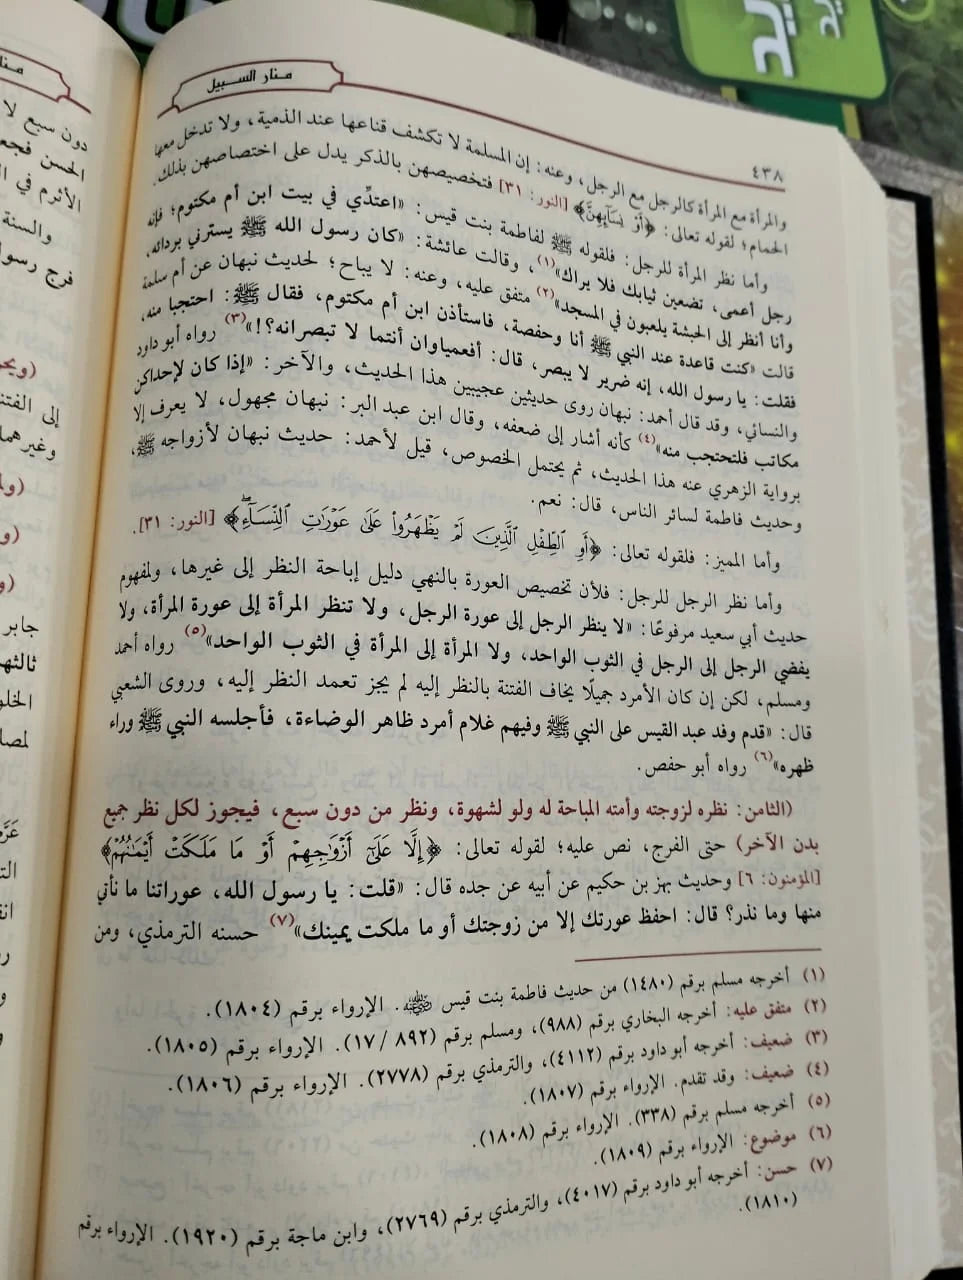 منار السبيل
٤٣٨
والمرأة مع المرأة كالرجل مع الرجل، وعنه: إن المسلمة لا تكشف قناعها عند الذمية، ولا تدخل معها
الحمام؛ لقوله تعالى: ﴿أَوْ نِسَآئِهِنَّ﴾ [النور: ٣١] فتخصيصهن بالذكر يدل على اختصاصهن بذلك.
وأما نظر المرأة للرجل: فلقوله ﷺ لفاطمة بنت قيس: «اعتدِّي في بيت ابن أم مكتوم؛ فإنه
رجل أعمى، تضعين ثيابك فلا يراك»(١)، وقالت عائشة: «كان رسول الله ﷺ يسترني بردائه،
وأنا أنظر إلى الحبشة يلعبون في المسجد»(٢) متفق عليه، وعنه: لا يباح؛ لحديث نبهان عن أم سلمة
قالت «كنت قاعدة عند النبي ﷺ أنا وحفصة، فاستأذن ابن أم مكتوم، فقال ﷺ: احتجبا منه،
فقلت: يا رسول الله، إنه ضرير لا يبصر، قال: أفعمياوان أنتما لا تبصرانه؟!»(٣) رواه أبو داود
والنسائي، وقد قال أحمد: نبهان روى حديثين عجيبين هذا الحديث، والآخر: «إذا كان لإحداكن
مكاتب فلتحتجب منه»(٤) كأنه أشار إلى ضعفه، وقال ابن عبد البر: نبهان مجهول، لا يعرف إلا
برواية الزهري عنه هذا الحديث، ثم يحتمل الخصوص، قيل لأحمد: حديث نبهان لأزواجه ﷺ،
وحديث فاطمة لسائر الناس، قال: نعم.
وأما المميز: فلقوله تعالى: ﴿أَوِ الطِّفْلِ الَّذِينَ لَمْ يَظْهَرُوا عَلَىٰ عَوْرَاتِ النِّسَآءِ﴾ [النور: ٣١].
وأما نظر الرجل للرجل: فلأن تخصيص العورة بالنهي دليل إباحة النظر إلى غيرها، ولمفهوم
حديث أبي سعيد مرفوعًا: «لا ينظر الرجل إلى عورة الرجل، ولا تنظر المرأة إلى عورة المرأة، ولا
يفضي الرجل إلى الرجل في الثوب الواحد، ولا المرأة إلى المرأة في الثوب الواحد»(٥) رواه أحمد
ومسلم، لكن إن كان الأمرد جميلًا يخاف الفتنة بالنظر إليه لم يجز تعمد النظر إليه، وروى الشعبي
قال: «قدم وفد عبد القيس على النبي ﷺ وفيهم غلام أمرد ظاهر الوضاءة، فأجلسه النبي ﷺ وراء
ظهره»(٦) رواه أبو حفص.
(الثامن: نظره لزوجته وأمته المباحة له ولو لشهوة، ونظر من دون سبع، فيجوز لكل نظر جميع
بدن الآخر) حتى الفرج، نص عليه؛ لقوله تعالى: ﴿إِلَّا عَلَىٰٓ أَزْوَٰجِهِمْ أَوْ مَا مَلَكَتْ أَيْمَٰنُهُمْ﴾
[المؤمنون: ٦] وحديث بهز بن حكيم عن أبيه عن جده قال: «قلت: يا رسول الله، عوراتنا ما نأتي
منها وما نذر؟ قال: احفظ عورتك إلا من زوجتك أو ما ملكت يمينك»(٧) حسنه الترمذي، ومن
(١) أخرجه مسلم برقم (١٤٨٠) من حديث فاطمة بنت قيس. الإرواء برقم (١٨٠٤).
(٢) متفق عليه: أخرجه البخاري برقم (٩٨٨)، ومسلم برقم (٨٩٢/ ١٧). الإرواء برقم (١٨٠٥).
(٣) ضعيف: أخرجه أبو داود برقم (٤١١٢)، والترمذي برقم (٢٧٧٨). الإرواء برقم (١٨٠٦).
(٤) ضعيف: وقد تقدم. الإرواء برقم (١٨٠٧).
(٥) أخرجه مسلم برقم (٣٣٨). الإرواء برقم (١٨٠٨).
(٦) موضوع: الإرواء برقم (١٨٠٩).
(٧) حسن: أخرجه أبو داود برقم (٤٠١٧)، والترمذي برقم (٢٧٦٩)، وابن ماجة برقم (١٩٢٠). الإرواء برقم
(١٨١٠).